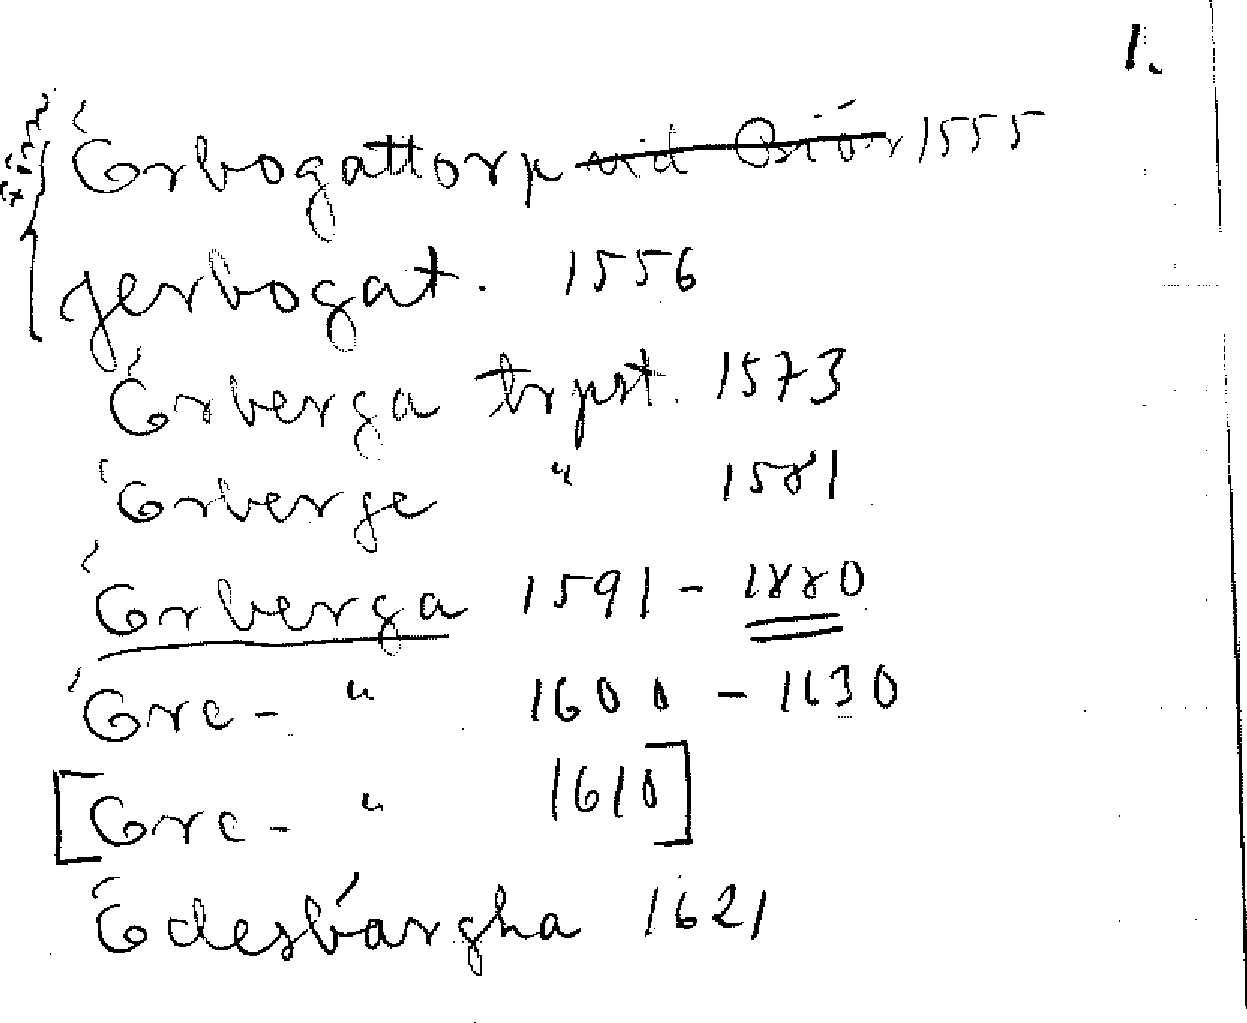 1.
Erbogattorp vid Biör 1555
jerbogat. 1556
Erberga trpst. 1573
Erberge " 1581
Erberga 1591 - 1880
Ere- " 1600 - 1630
[Ere- " 1610]
Edesbargha 1621